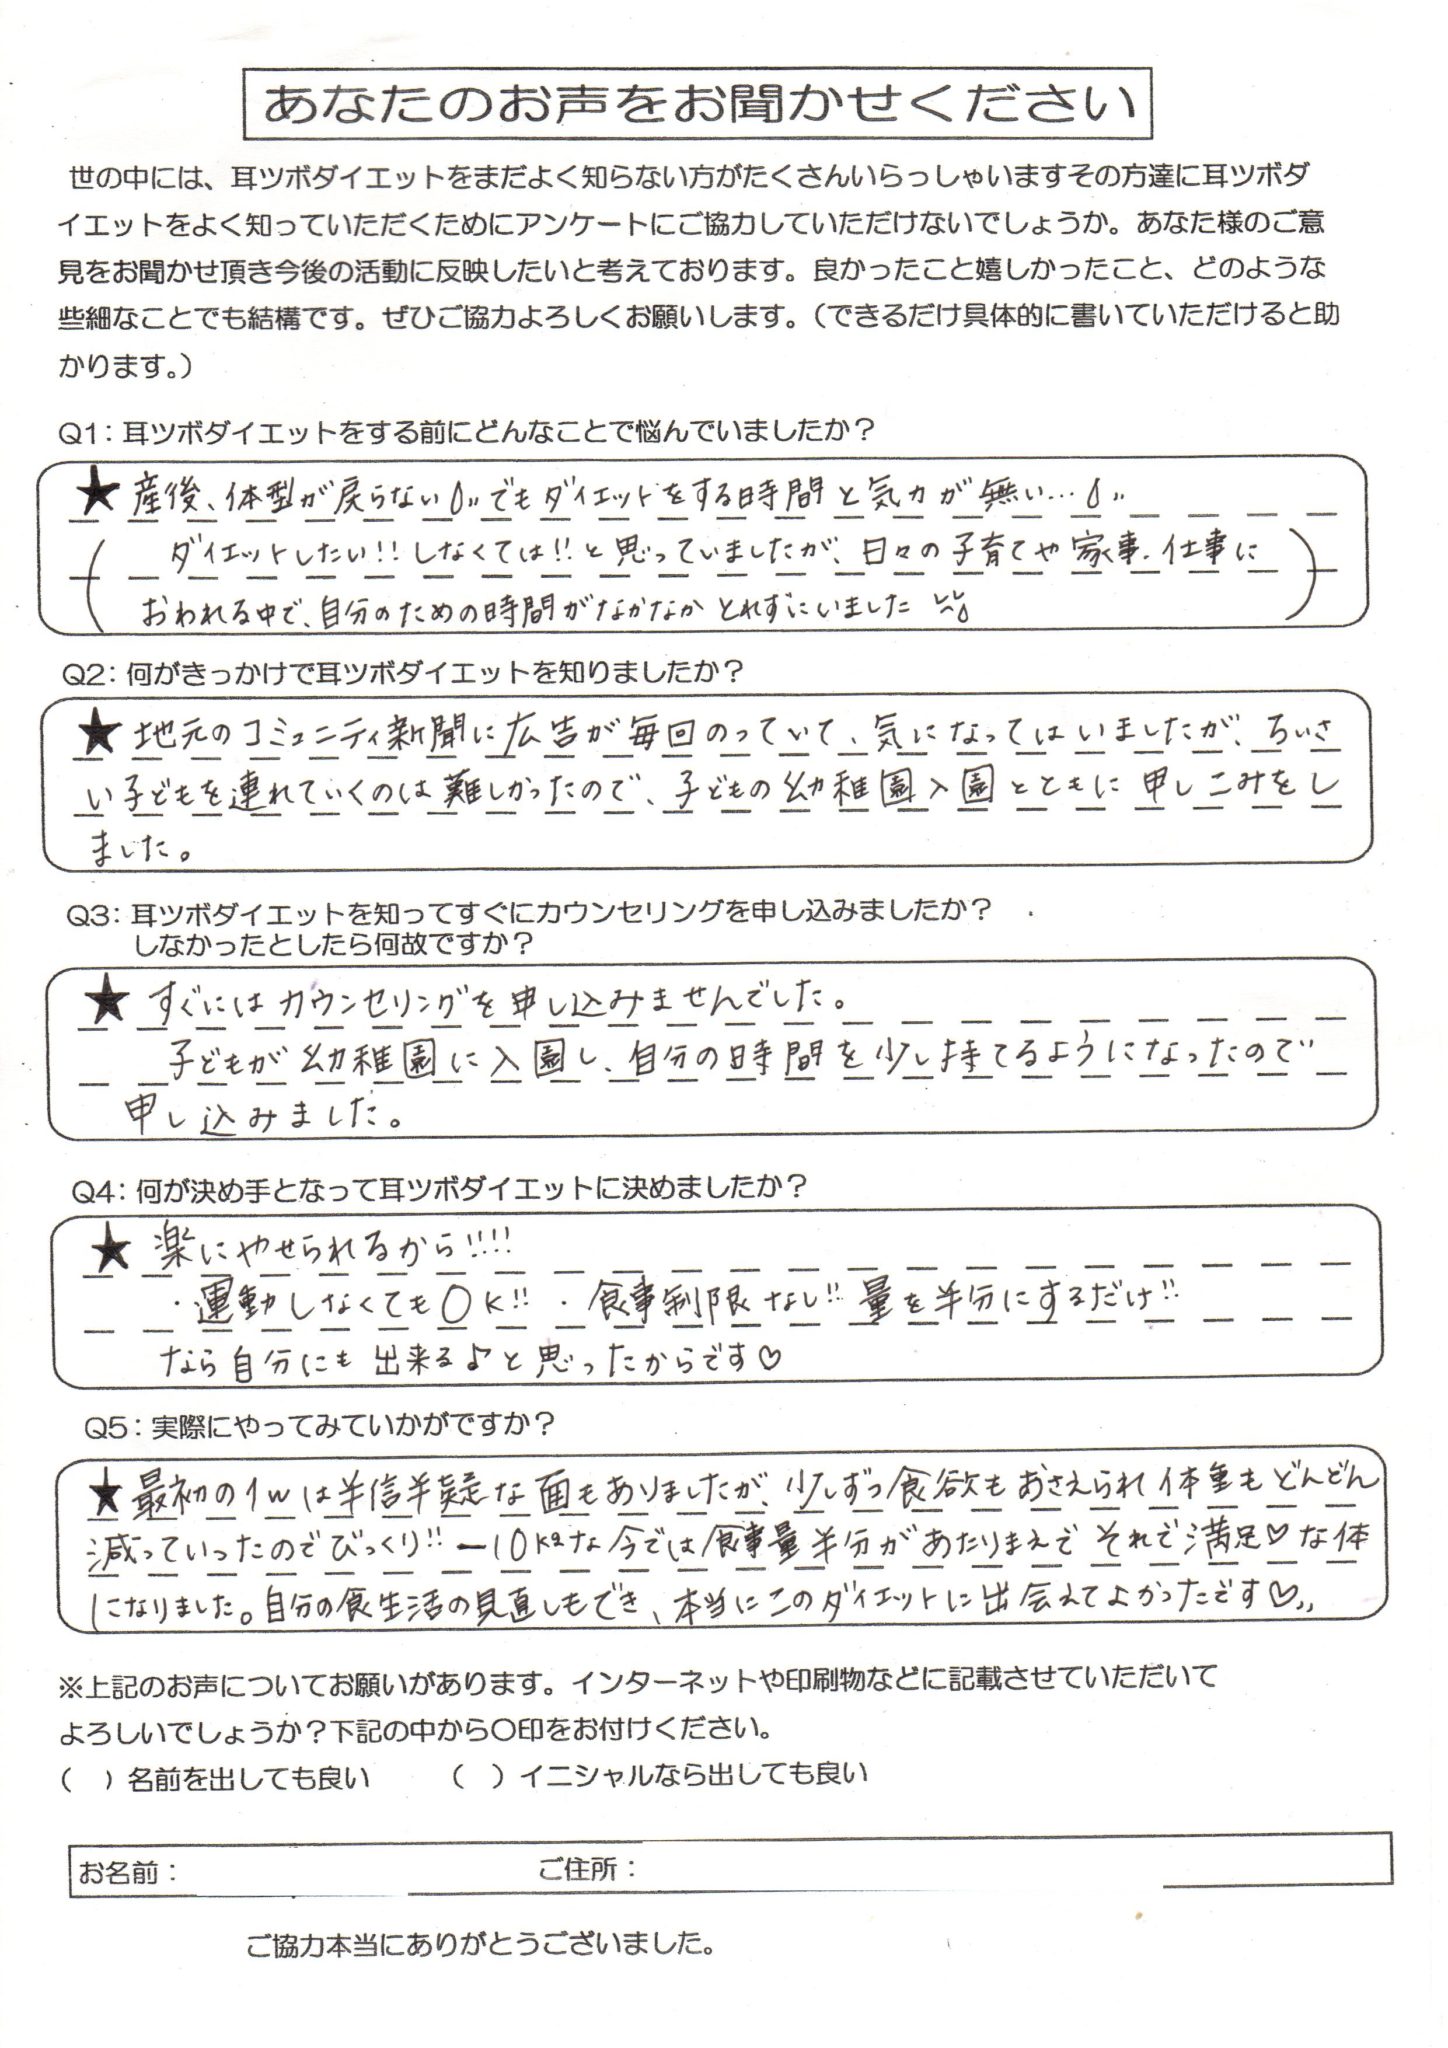 あなたのお声をお聞かせください
世の中には、耳ツボダイエットをまだよく知らない方がたくさんいらっしゃいますその方達に耳ツボダ
イエットをよく知っていただくためにアンケートにご協力していただけないでしょうか。あなた様のご意
見をお聞かせ頂き今後の活動に反映したいと考えております。良かったこと嬉しかったこと、どのような
些細なことでも結構です。ぜひご協力よろしくお願いします。（できるだけ具体的に書いていただけると助
かります。）
Q1：耳ツボダイエットをする前にどんなことで悩んでいましたか？
★ 産後、体型が戻らない でもダイエットをする時間と気力が無い…
（ ダイエットしたい!! しなくては!! と思っていましたが、日々の子育てや家事、仕事に
おわれる中で、自分のための時間がなかなかとれずにいました ）
Q2：何がきっかけで耳ツボダイエットを知りましたか？
★ 地元のコミュニティ新聞に広告が毎回のっていて、気になってはいましたが、ちいさ
い子どもを連れていくのは難しかったので、子どもの幼稚園入園とともに申しこみをし
ました。
Q3：耳ツボダイエットを知ってすぐにカウンセリングを申し込みましたか？
しなかったとしたら何故ですか？
★ すぐにはカウンセリングを申し込みませんでした。
子どもが幼稚園に入園し、自分の時間を少し持てるようになったので
申し込みました。
Q4：何が決め手となって耳ツボダイエットに決めましたか？
★ 楽にやせられるから!!!!
・運動しなくてもOK!! ・食事制限なし!! 量を半分にするだけ!!
なら自分にも出来る♪と思ったからです♡
Q5：実際にやってみていかがですか？
★ 最初の1wは半信半疑な面もありましたが、少しずつ食欲もおさえられ体重もどんどん
減っていったのでびっくり!! −10kgな今では食事量半分があたりまえでそれで満足♡な体
になりました。自分の食生活の見直しもでき、本当にこのダイエットに出会えてよかったです♡
※上記のお声についてお願いがあります。インターネットや印刷物などに記載させていただいて
よろしいでしょうか？下記の中から〇印をお付けください。
（　）名前を出しても良い　　（　）イニシャルなら出しても良い
お名前：　　ご住所：
ご協力本当にありがとうございました。